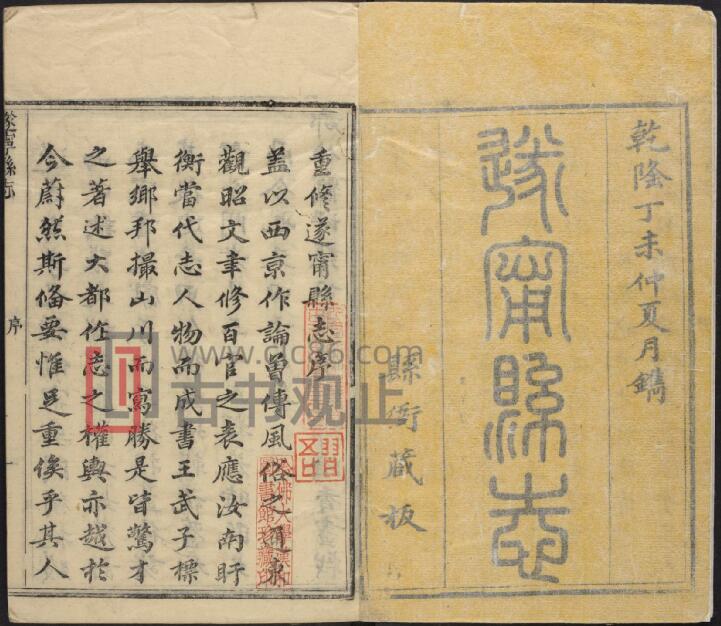 乾隆丁未仲夏月鐫
遂甯縣志
縣衙藏板
重修遂甯縣志序
蓋以西京作論曾傳風俗之通東
觀昭文聿修百官之表應汝南盱
衡當代志人物而成書王武子標
舉鄉邦撮山川而寫勝是皆驚才
之著述大都作志之權輿亦越於
今蔚然斯備要惟足重俟乎其人
遂寧縣志
序
www.cjc86.com
古书观止